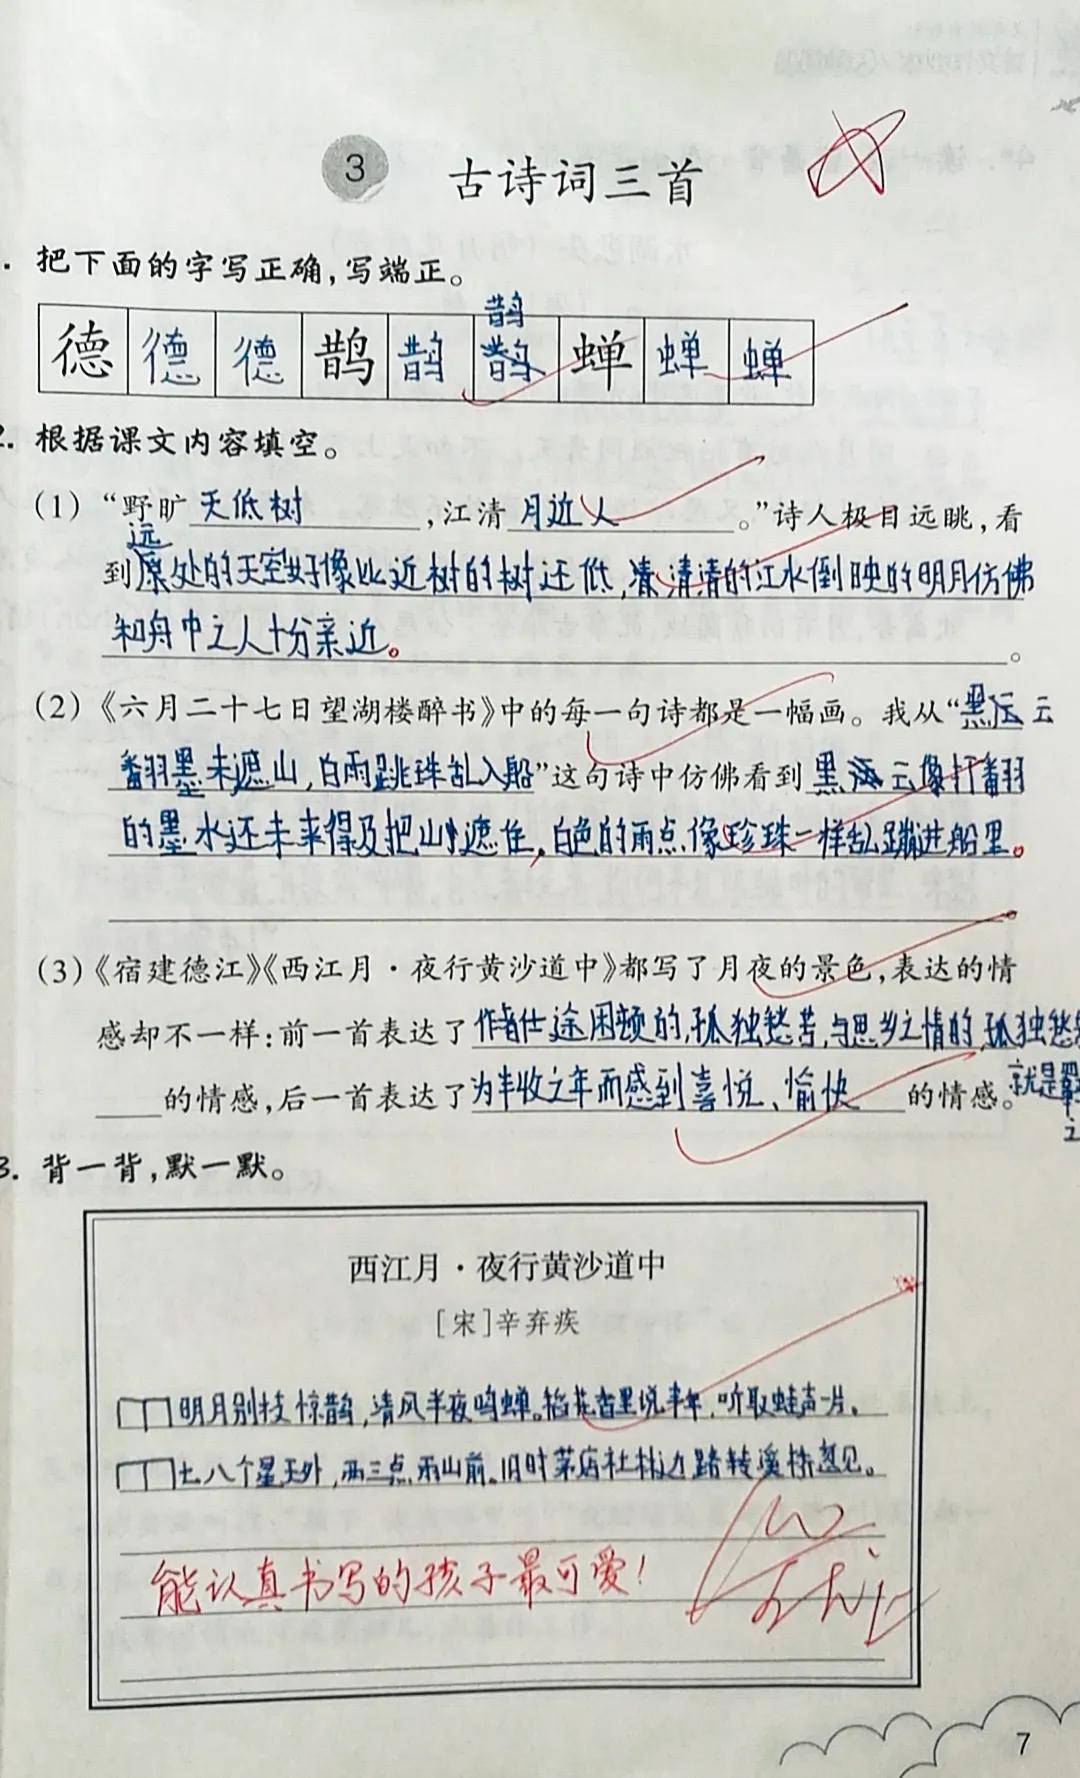 3 古诗词三首
. 把下面的字写正确,写端正。
鹊
德 德 德 鹊 鹊 蝉 蝉 蝉
2. 根据课文内容填空。
(1)“野旷天低树,江清月近人。”诗人极目远眺,看
远
到处的天空好像比近树的树还低,清清的江水倒映的明月仿佛
和舟中之人十分亲近。。
(2)《六月二十七日望湖楼醉书》中的每一句诗都是一幅画。我从“黑云
翻墨未遮山,白雨跳珠乱入船”这句诗中仿佛看到黑云像打翻
的墨水还未来得及把山遮住,白色的雨点像珍珠一样乱蹦进船里。
。
(3)《宿建德江》《西江月·夜行黄沙道中》都写了月夜的景色,表达的情
感却不一样:前一首表达了作者仕途困顿的,孤独愁苦,与思乡之情的,孤独愁
的情感,后一首表达了为丰收之年而感到喜悦、愉快的情感。就是
3. 背一背,默一默。
西江月·夜行黄沙道中
[宋]辛弃疾
明月别枝惊鹊,清风半夜鸣蝉。稻花香里说丰年,听取蛙声一片。
七八个星天外,两三点雨山前。旧时茅店社林边,路转溪桥忽见。
能认真书写的孩子最可爱!
7